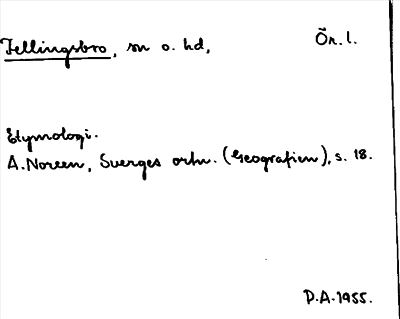 Fellingsbro, sn o. hd, Ör. l.
Etymologi.
A. Noreen, Sverges ortn. (Geografien), s. 18.
P.A. 1955.